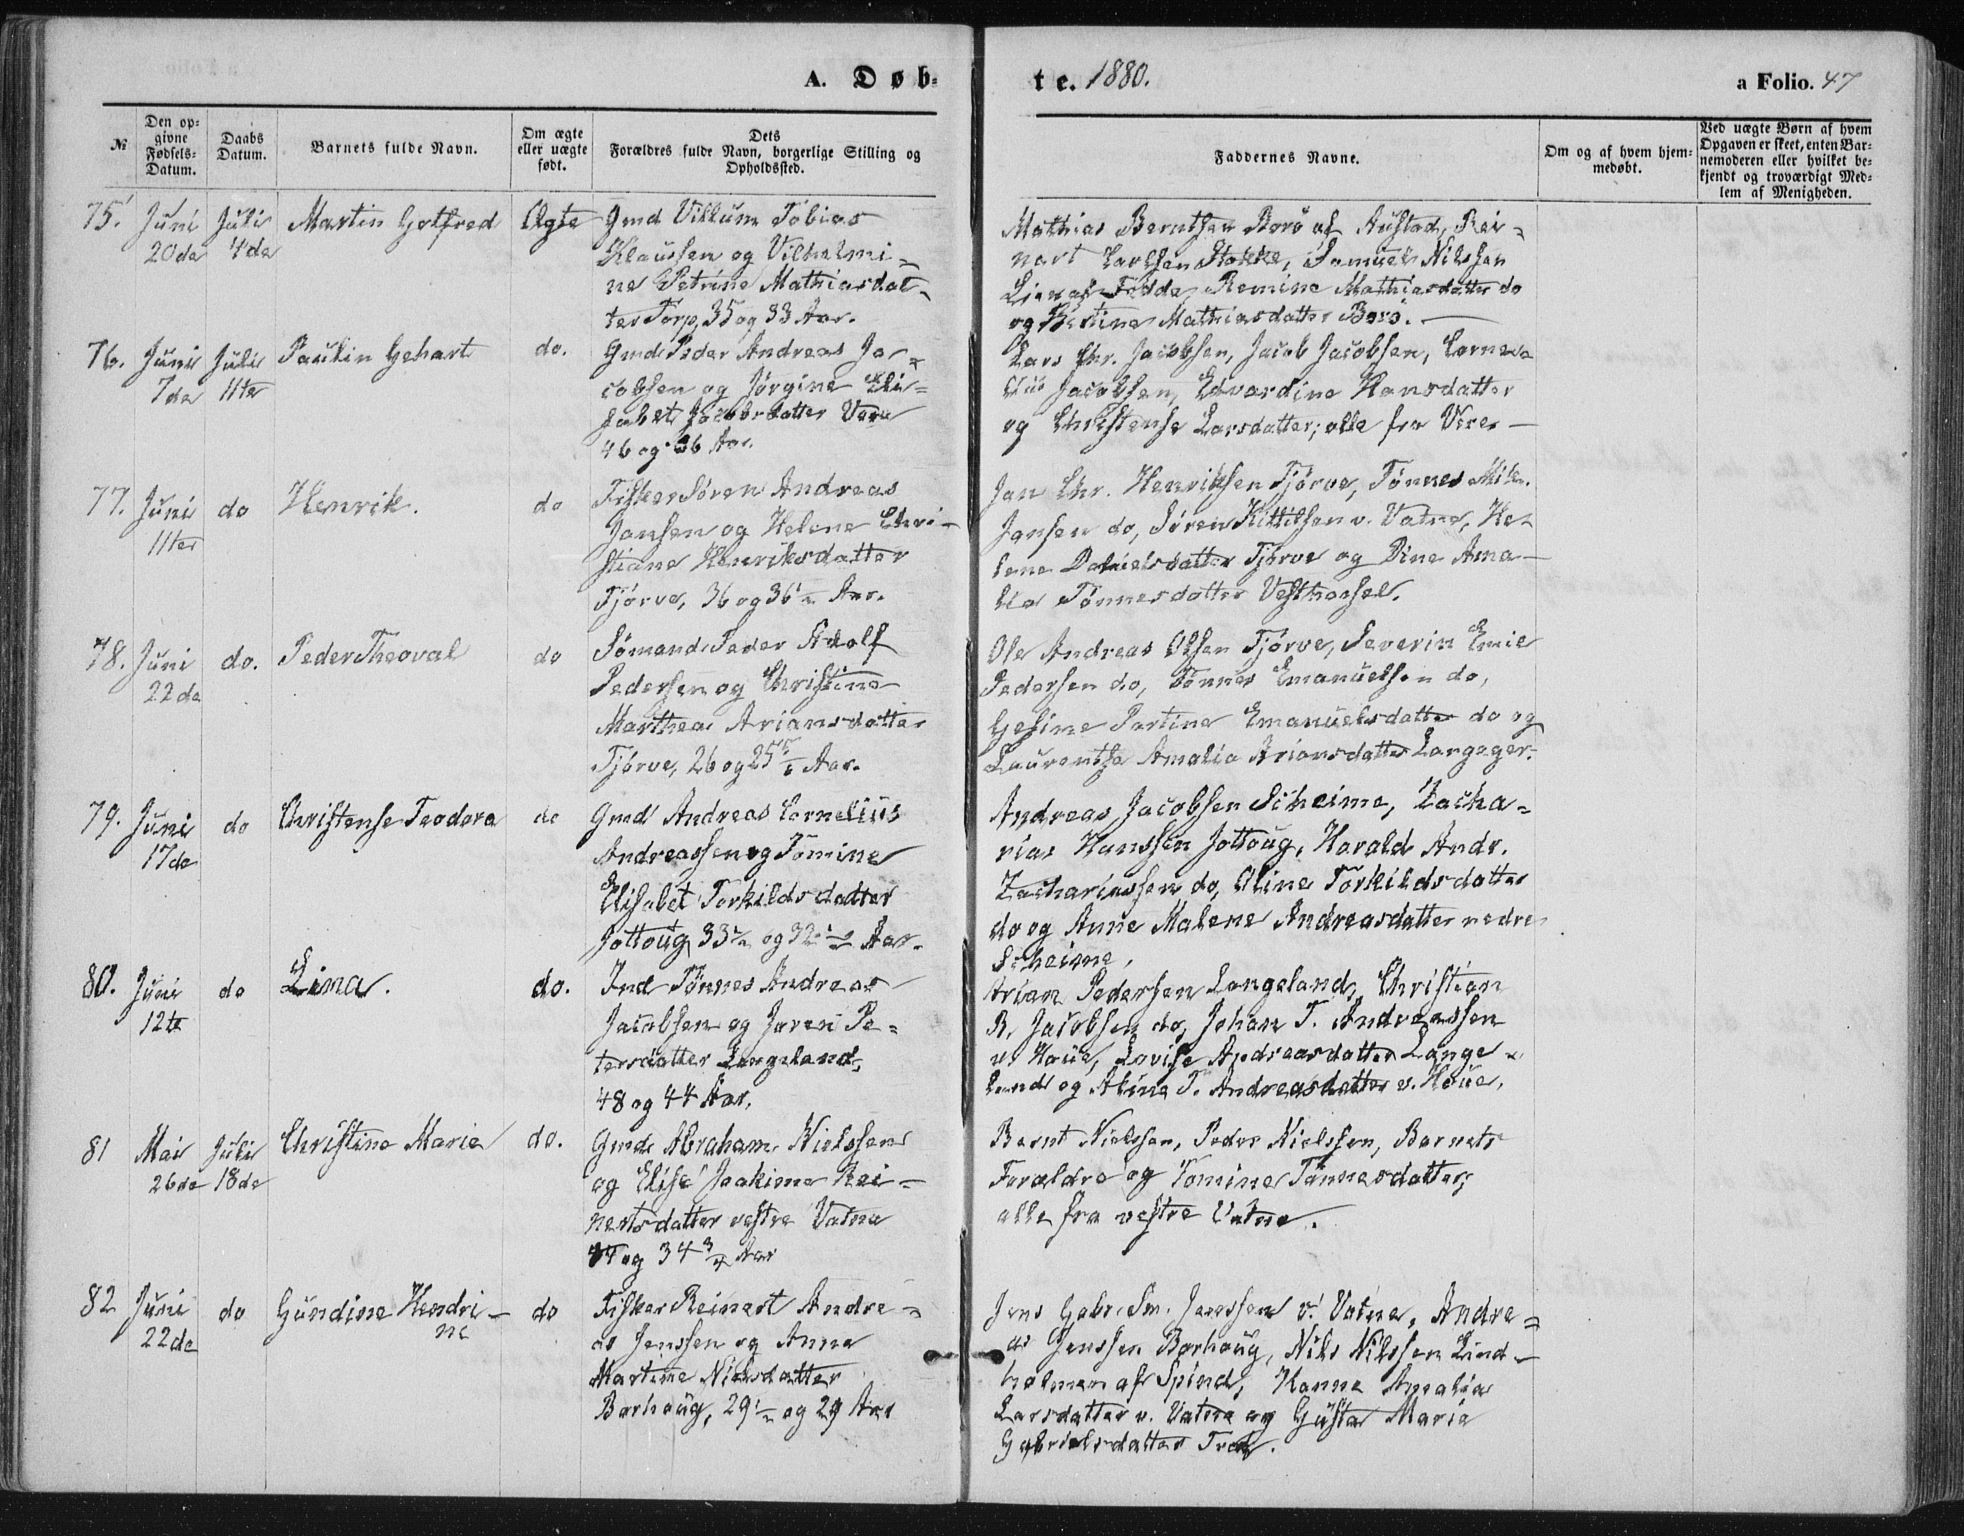 A. Døb-
te. 1880.
a Folio. 47
№
Den op-
givne
Fødsels-
Datum.
Daabs
Datum.
Barnets fulde Navn.
Om ægte
eller uægte
født.
Dets
Forældres fulde Navn, borgerlige Stilling og
Opholdssted.
Faddernes Navne.
Om og af hvem hjem-
medøbt.
Ved uægte Børn af hvem
Opgaven er skeet, enten Bar-
nemoderen eller hvilket be-
kjendt og troværdigt Med-
lem af Menigheden.
75. Juni 20de
Juli 4de
Martin Gotfred
Ægte
Gmd Villum Tobias
Klaussen og Vilhelmi-
ne Petrine Mathiasdat-
ter Torp, 35 og 33 Aar.
Mathias Berntsen Borø af Austad, Rei-
nart Carlsen Stokke, Samuel Nilssen
Lien af Fedde, Remine Mathiasdatter do
og Bertine Mathiasdatter Borø.
76. Juni 7de
Juli 11te
Paulin Gehart
do.
Gmd Peder Andreas Ja-
cobsen og Jørgine Eli-
sabet Jacobsdatter Vere
46 og 36 Aar.
Lars Chr. Jacobsen, Jacob Jacobsen, Corne-
lius Jacobsen, Edvardine Hansdatter
og Christense Larsdatter; alle fra Vere
77. Juni 11te
do
Henrik.
do
Fisker Søren Andreas
Jansen og Helene Chri-
stiane Henriksdatter
Tjørve, 36 og 36 ½ Aar.
Jan Chr. Henriksen Tjørve, Tønnes Mik.
Jansen do, Søren Kittilsen v. Vatne, He-
lene Danielsdatter Tjørve og Dine Ama-
lia Tønnesdatter Vesthassel.
78. Juni 22de
do.
Peder Theoval
do
Sømand Peder Adolf
Pedersen og Christine
Marthea Ariansdatter
Tjørve, 26 og 25 Aar.
Ole Andreas Olsen Tjørve, Severin Emil
Pedersen do, Tønnes Emanuelsen do,
Gesine Partine Emanuelsdatter do og
Laurentse Amalia Ariansdatter Langeger.
79. Juni 17de
do
Christense Teodora
do
Gmd Andreas Cornelius
Andreassen og Tomine
Elisabet Torkildsdatter
Jottoug 33 ½ og 32 ½ Aar.
Andreas Jacobsen Scheime, Zacha-
rias Hanssen Jottoug, Harald Andr.
Zachariassen do, Oline Torkildsdatter
do og Anne Malene Andreasdatter nedre
Scheime,
80. Juni 12te
do
Lina.
do.
Ind Tønnes Andreas
Jacobsen og Joren Pe-
tersdatter Langeland,
48 og 44 Aar.
Arian Pedersen Langeland, Christian
R. Jacobsen do, Johan T. Andreassen
v. Houe, Lovise Andreasdatter Lange-
land og Aline T. Andreasdatter v. Houe.
81 Mai 26de
Juli 18de
Christine Marie
do.
Gmd Abraham Nielssen
og Elise Joakime Rei-
nertsdatter vestre Vatne
og 34 ¾ Aar
Bernt Nielssen, Peder Nielssen, Barnets
Forældre og Tomine Tønnesdatter;
alle fra vestre Vatne.
82 Juni 22de
do
Gundine Hendri-
ne
do
Fisker Reinert Andre-
as Jenssen og Anne
Martine Nilsdatter
Borhaug, 29 ½ og 29 Aar
Jens Gabr. Sm. Janssen v. Vatne, Andre-
as Jenssen Borhaug, Nils Nilssen Lind-
holmen af Spind, Hanne Amalia
Larsdatter v. Vatne og Gusta Marie
Gabrielsdatter